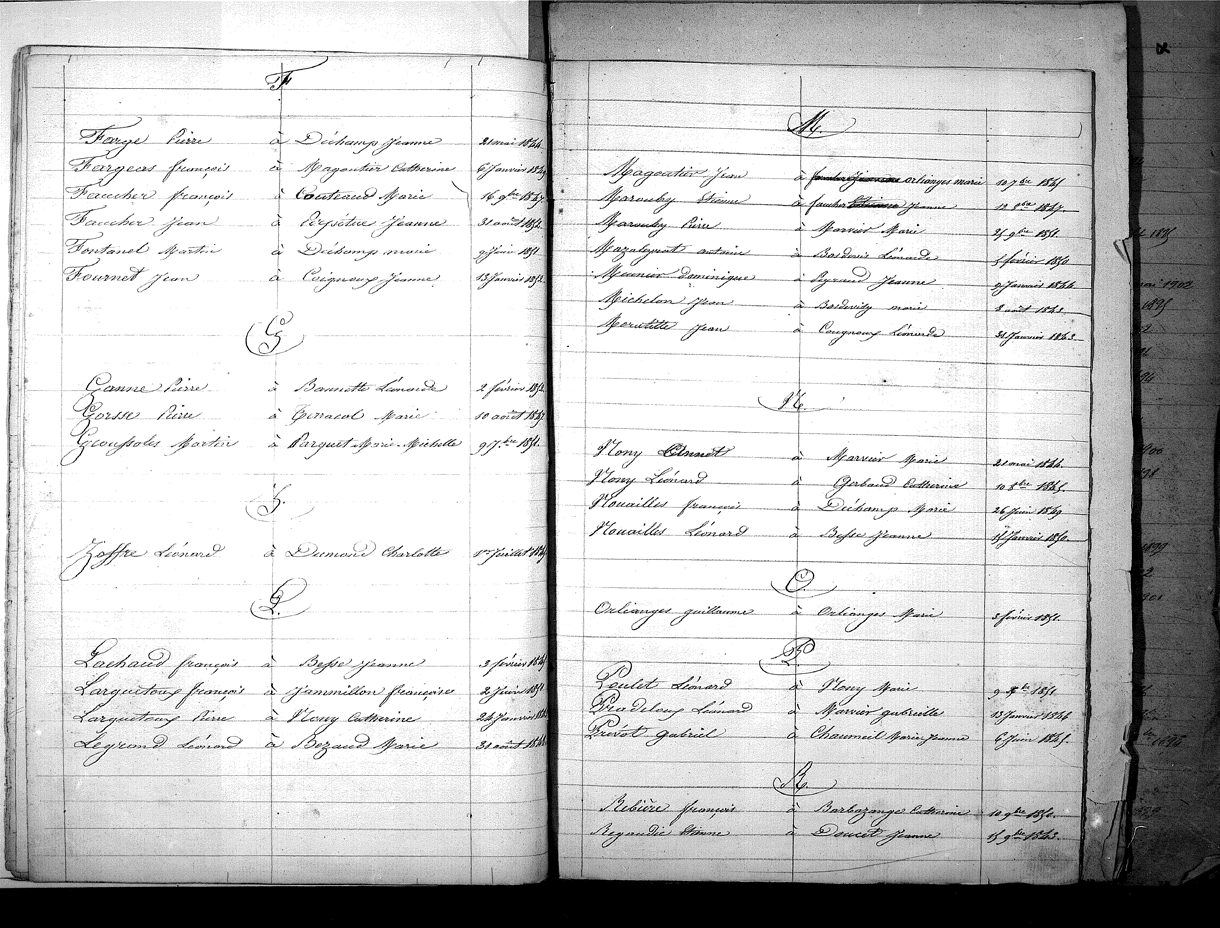 F
Farge Pierre à Déchamp Jeanne 21 mai 1844.
Fargeas françois à Magoutier Catherine 6 Janvier
Faucher françois à Couteaud Marie 16 9bre
Faucher Jean à Perpétue Jeanne 31 août 1852.
Fontanel Martin à Déchamp marie 9 Juin 1851.
Fournet Jean à Coignoux Jeanne 13 Janvier 1852.
G
Ganne Pierre à Bannette Léonarde 2 février
Gorsse Pierre à Terracol Marie 10 août
Gioussoles Martin à Parquet Marie-Michelle 9 7.bre 1851.
J.
Joffre Léonard à Dumond Charlotte 1er Juillet
L.
Lachaud françois à Besse Jeanne 3 février
Larquetoux françois à Jammillon françoise 2 Juin
Larquetoux Pierre à Nony Catherine 24 Janvier
Legrand Léonard à Bezaud Marie 31 août
M.
Magoutier Jean à orlianges marie 10 7bre 1845
Marouby Etienne à faucher Jeanne 12 8bre
Marouby Pierre à Marvier Marie 25 9bre 1851
Mazaleyrat antoine à Léonarde 5 février 1850
Meunier dominique à Peyraud Jeanne 9 Janvier 1844
Michelon Jean à marie 8 août
Jean à Coignoux Léonarde 31 Janvier 1843.
N.
Nony Annet à Marvier Marie 21 mai 1844.
Nony Léonard à Gerbaud Catherine 10 8bre 1845.
Nouailles françois à Déchamp Marie 26 Juin 1849
Nouailles Léonard à Besse Jeanne 15 Janvier 1850.
O.
Orlianges guillaume à Orlianges Marie 3 février 1851.
P.
Poulet Léonard à Nony Marie 9 1851
Pradeloux Léonard à Marvier gabrielle 13 Janvier 1844
Prévot gabriel à Chaumeil Marie Jeanne 6 Juin 1845.
R.
Rebière françois à Barbazange Catherine 10 9bre 1850.
Regaudie Etienne à Doucet Jeanne 15 9bre 1843.